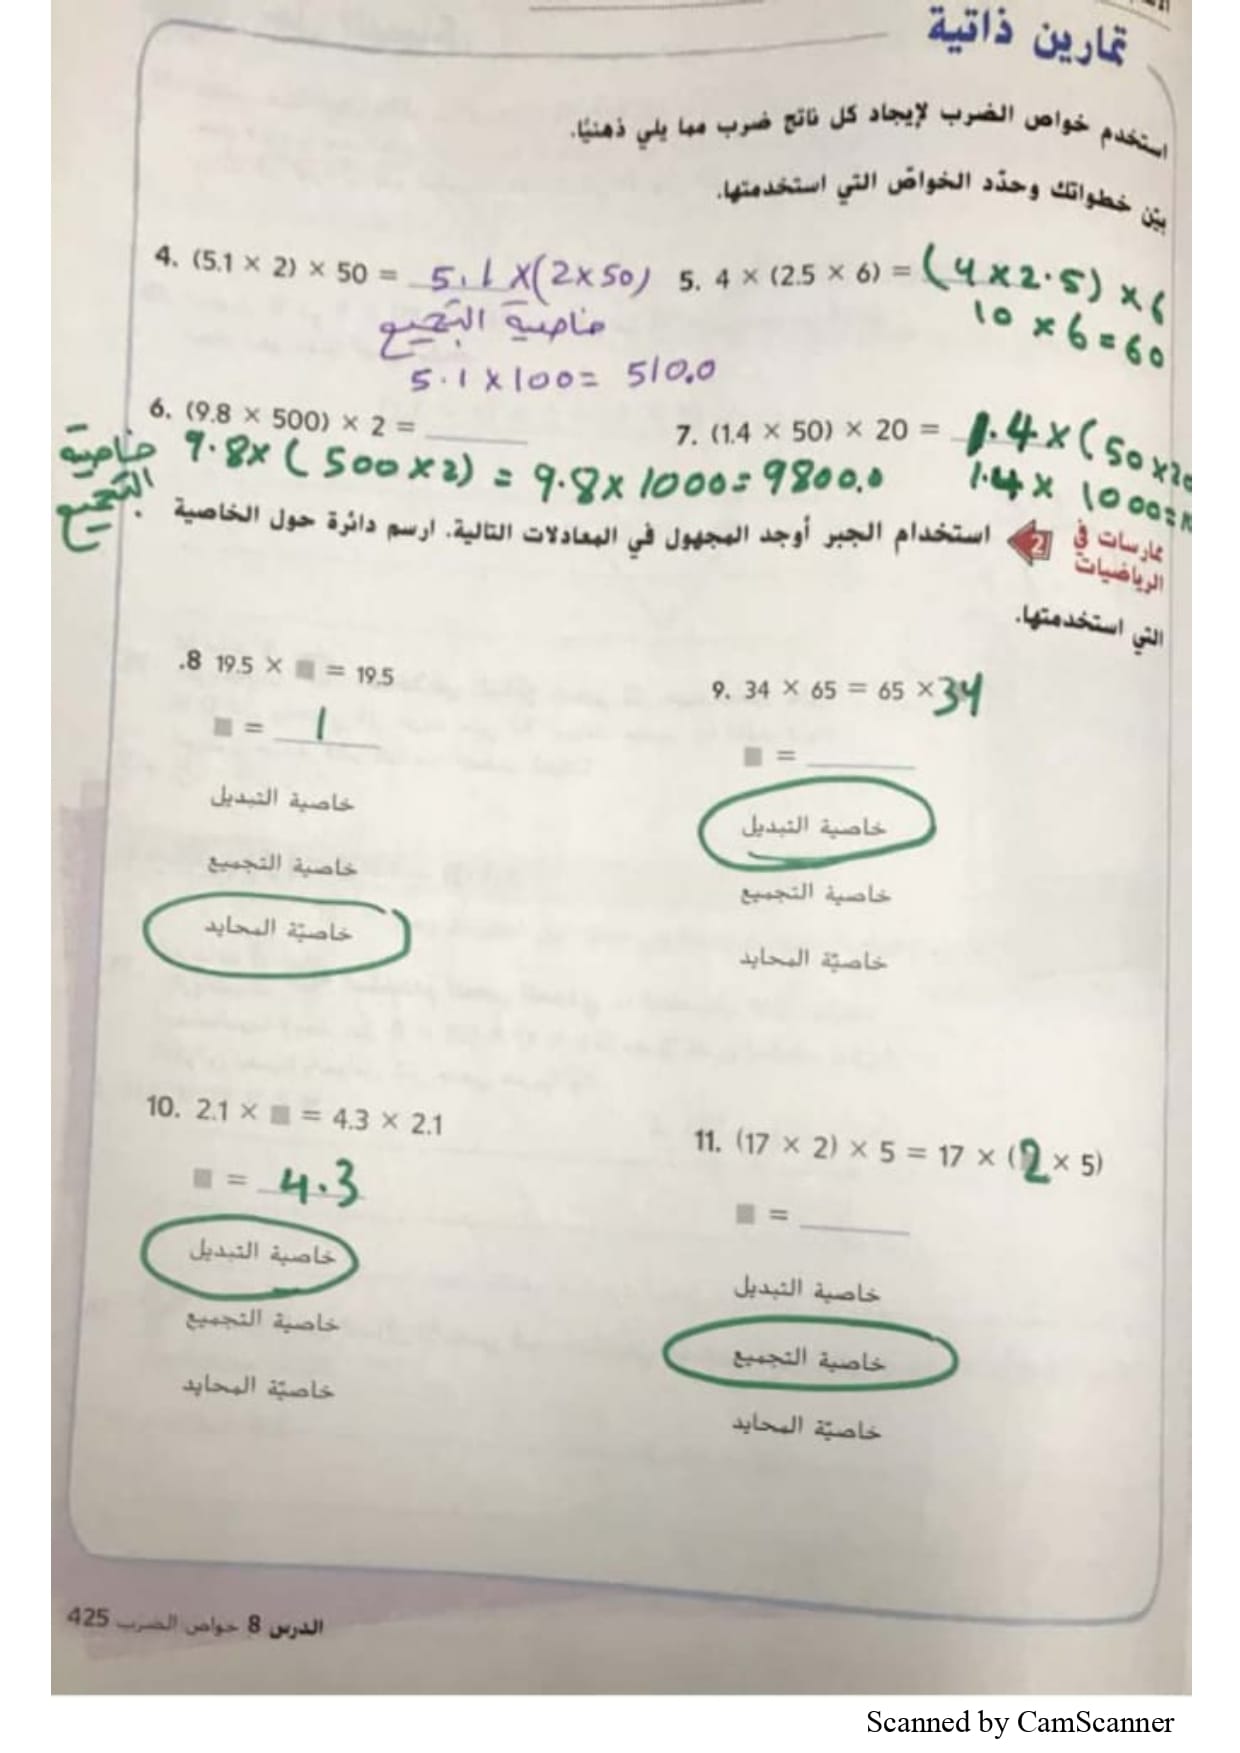 تمارين ذاتية
استخدم خواص الضرب لإيجاد كل ناتج ضرب مما يلي ذهنيًا.
بيّن خطواتك وحدّد الخواصّ التي استخدمتها.
4. (5.1 × 2) × 50 = 5.1 × (2 × 50)
خاصية التجميع
5.1 × 100 = 510.0
5. 4 × (2.5 × 6) = (4 × 2.5) × 6
10 × 6 = 60
6. (9.8 × 500) × 2 =
9.8 × (500 × 2) = 9.8 × 1000 = 9800.0
خاصية
التجميع
7. (1.4 × 50) × 20 = 1.4 × (50 × 20
1.4 × 1000 =
ممارسات في
الرياضيات
2
استخدام الجبر أوجد المجهول في المعادلات التالية. ارسم دائرة حول الخاصية
التي استخدمتها.
.8 19.5 × ■ = 19.5
■ = 1
خاصية التبديل
خاصية التجميع
خاصيّة المحايد
9. 34 × 65 = 65 × 34
■ =
خاصية التبديل
خاصية التجميع
خاصيّة المحايد
10. 2.1 × ■ = 4.3 × 2.1
■ = 4.3
خاصية التبديل
خاصية التجميع
خاصيّة المحايد
11. (17 × 2) × 5 = 17 × (2 × 5)
■ =
خاصية التبديل
خاصية التجميع
خاصيّة المحايد
الدرس 8 خواص الضرب 425
Scanned by CamScanner